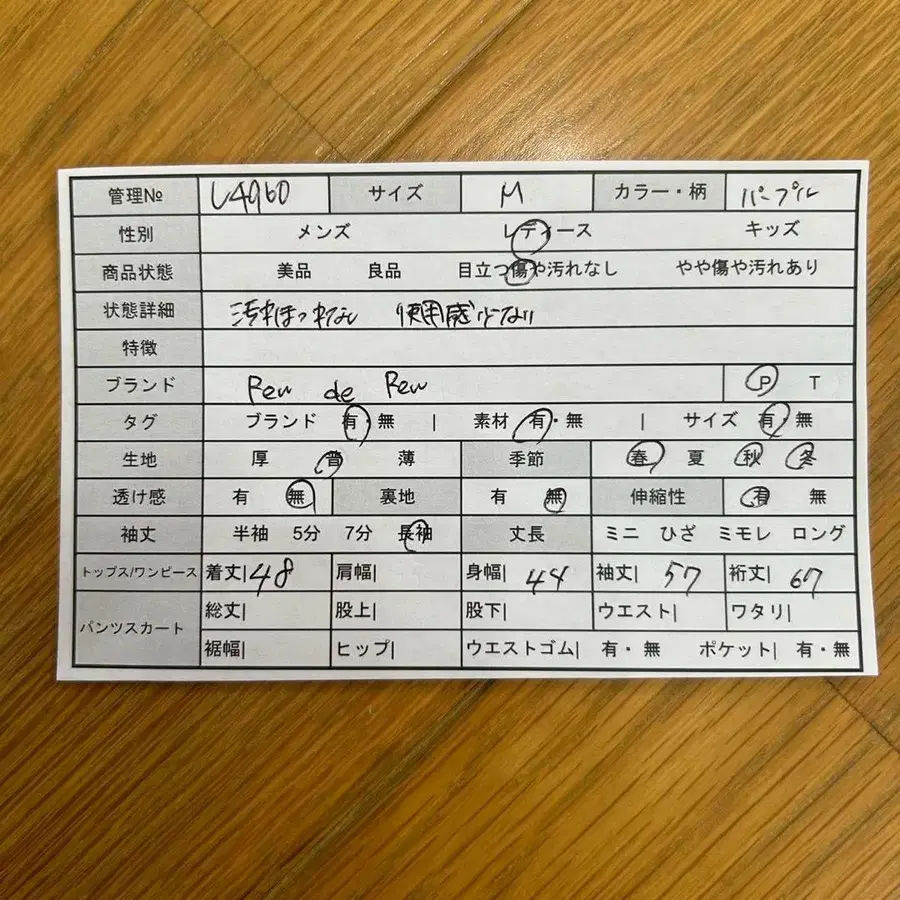 管理№ L4960 サイズ M カラー・柄 パープル
性別 メンズ レディース キッズ
商品状態 美品 良品 目立つ傷や汚れなし やや傷や汚れあり
状態詳細 汚れほつれなし 使用感少ない
特徴
ブランド Rew de Rew P T
タグ ブランド 有・無 | 素材 有・無 | サイズ 有・無
生地 厚 普 薄 季節 春 夏 秋 冬
透け感 有 無 裏地 有 無 伸縮性 有 無
袖丈 半袖 5分 7分 長袖 丈長 ミニ ひざ ミモレ ロング
トップス/ワンピース 着丈| 48 肩幅| 身幅| 44 袖丈| 57 裄丈| 67
パンツスカート 総丈| 股上| 股下| ウエスト| ワタリ|
裾幅| ヒップ| ウエストゴム| 有・無 ポケット| 有・無